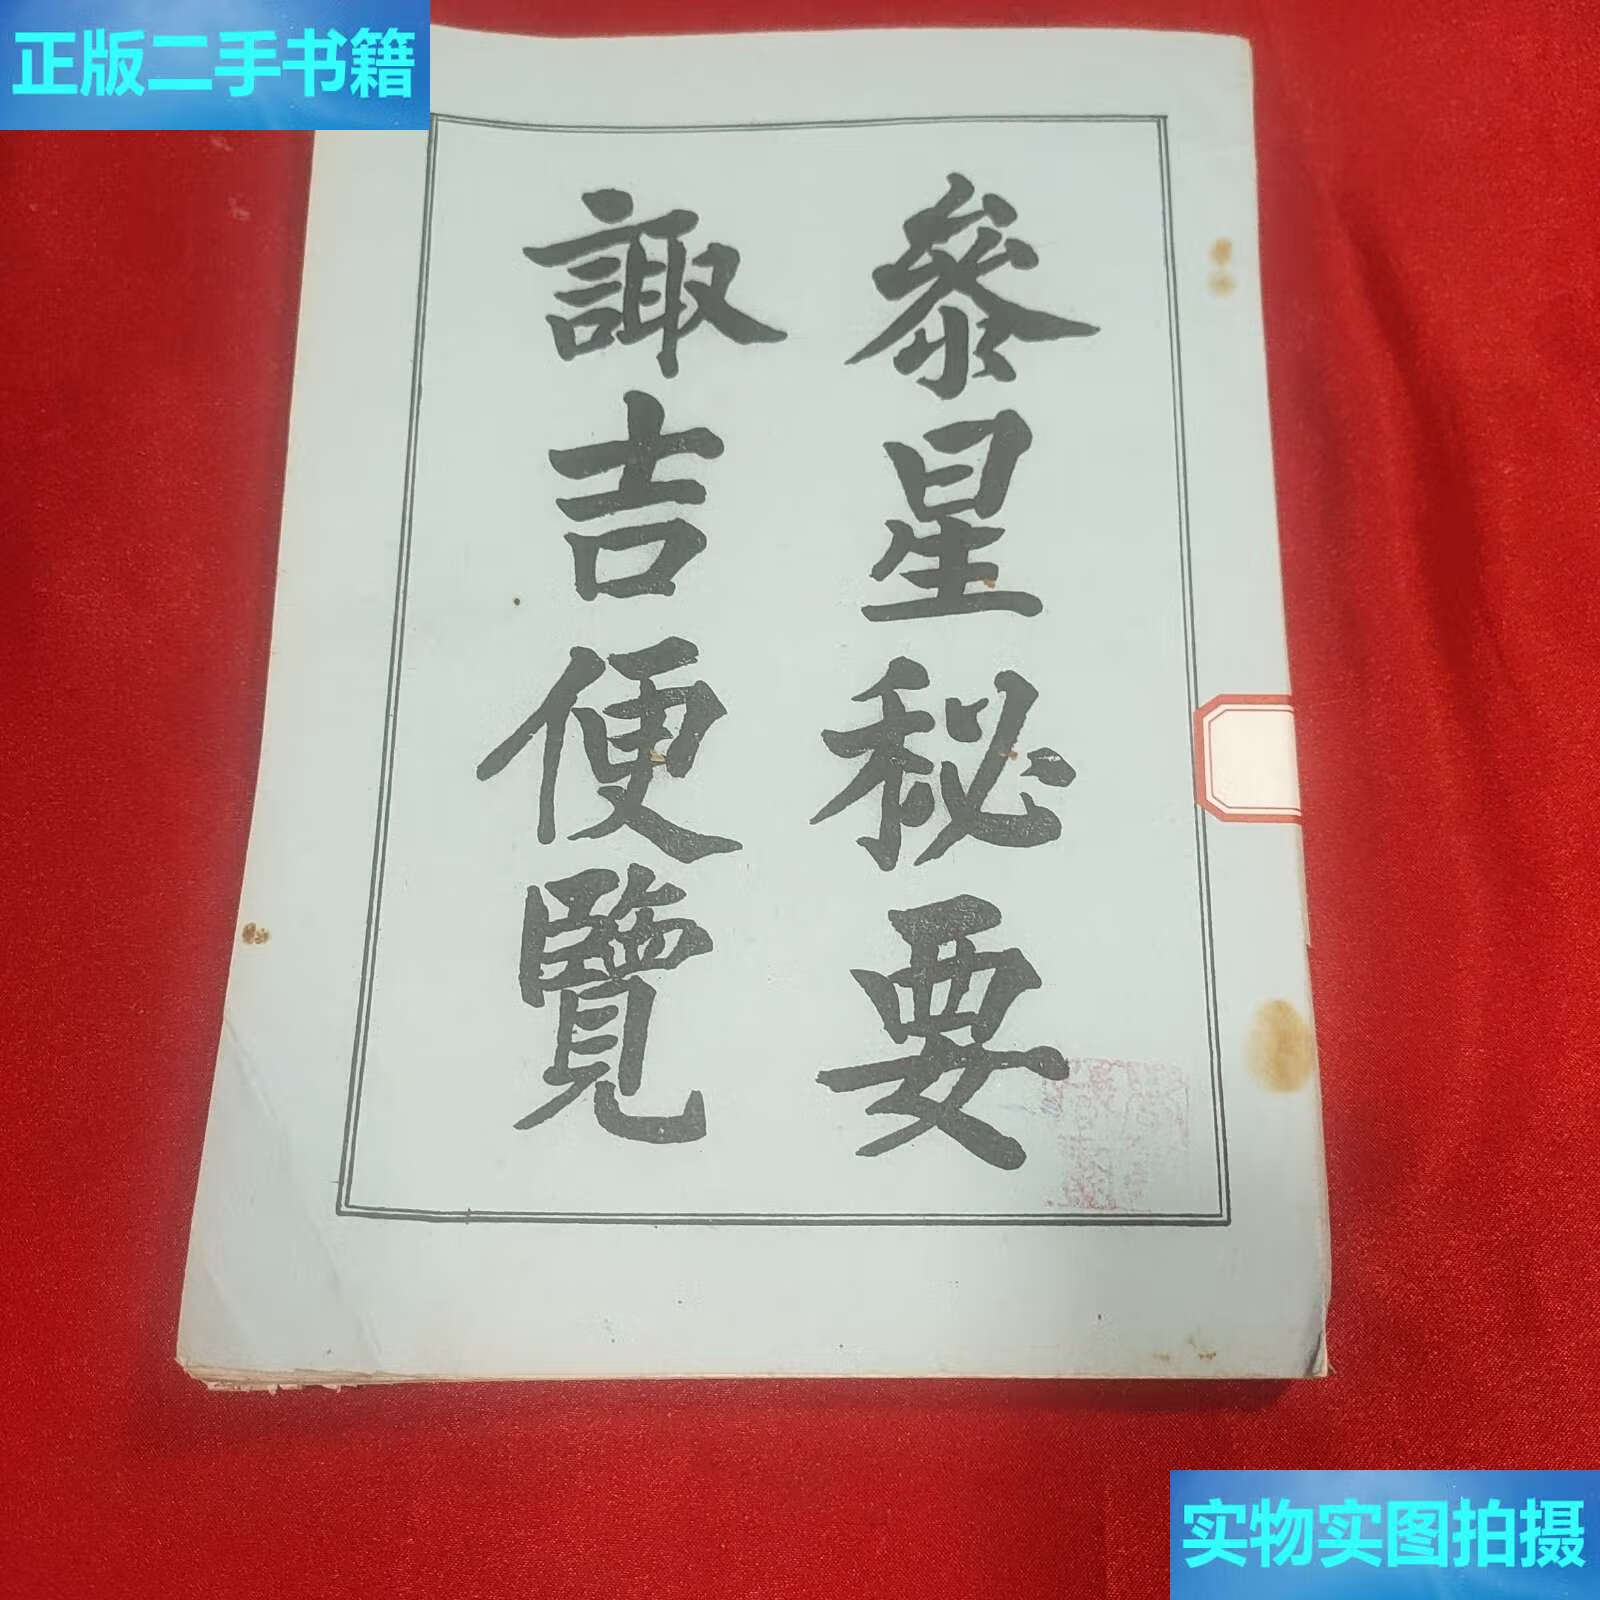 正版二手书籍
參星秘要
諏吉便覽
实物实图拍摄